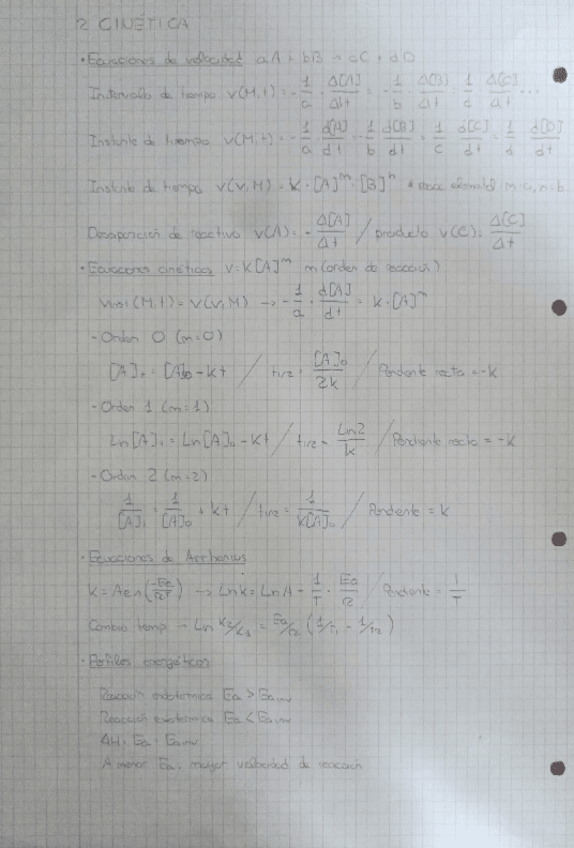 2 CINÉTICA
· Ecuaciones de velocidad aA + bB → cC + dD
Intervalo de tiempo v(M,t) = - 1/a · Δ[A]/Δt = - 1/b · Δ[B]/Δt = 1/c · Δ[C]/Δt ...
Instante de tiempo v(M,t) = - 1/a · d[A]/dt = - 1/b d[B]/dt = 1/c d[C]/dt = 1/d d[D]/dt
Instante de tiempo v(v,M) = k · [A]^m · [B]^n * m=a, n=b
Desaparición de reactivo v(A) = - Δ[A]/Δt / producto v(C) = Δ[C]/Δt
· Ecuaciones cinéticas v = k[A]^m m (orden de reacción)
(M,t) = v(v,M) → - 1/a · d[A]/dt = k · [A]^m
- Orden 0 (m=0)
[A]t = [A]0 - kt / t1/2 = [A]0/2k / Pendiente recta = -k
- Orden 1 (m=1)
Ln[A]t = Ln[A]0 - kt / t1/2 = Ln2/k / Pendiente recta = -k
- Orden 2 (m=2)
1/[A]t = 1/[A]0 + kt / t1/2 = 1/k[A]0 / Pendiente = k
· Ecuaciones de Arrhenius
k = A (-Ea/RT) → Lnk = LnA - 1/T · Ea/R / Pendiente = 1/T
Cambio temp → Ln k2/k1 = Ea/R (1/T1 - 1/T2)
· Perfiles energéticos
Reacción endotérmica Ea > Eainv
Reacción exotérmica Ea < Eainv
ΔH = Ea - Eainv
A menor Ea, mayor velocidad de reacción